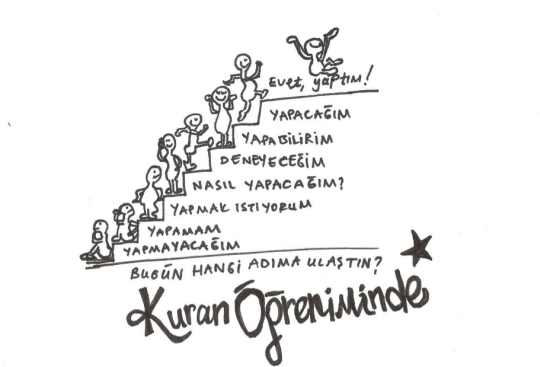 Evet, yaptım!
YAPACAĞIM
YAPABİLİRİM
DENEYECEĞİM
NASIL YAPACAĞIM?
YAPMAK İSTİYORUM
YAPAMAM
YAPMAYACAĞIM
BUGÜN HANGİ ADIMA ULAŞTIN?
Kuran Öğreniminde